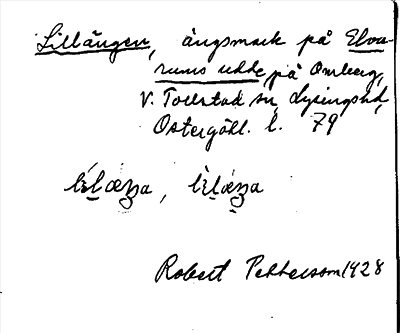 Lillängen, ängsmark på Elva-
rums udde på Omberg,
V. Tollstad sn, Lysings hd,
Östergötl. l. 79
Robert Pettersson 1928